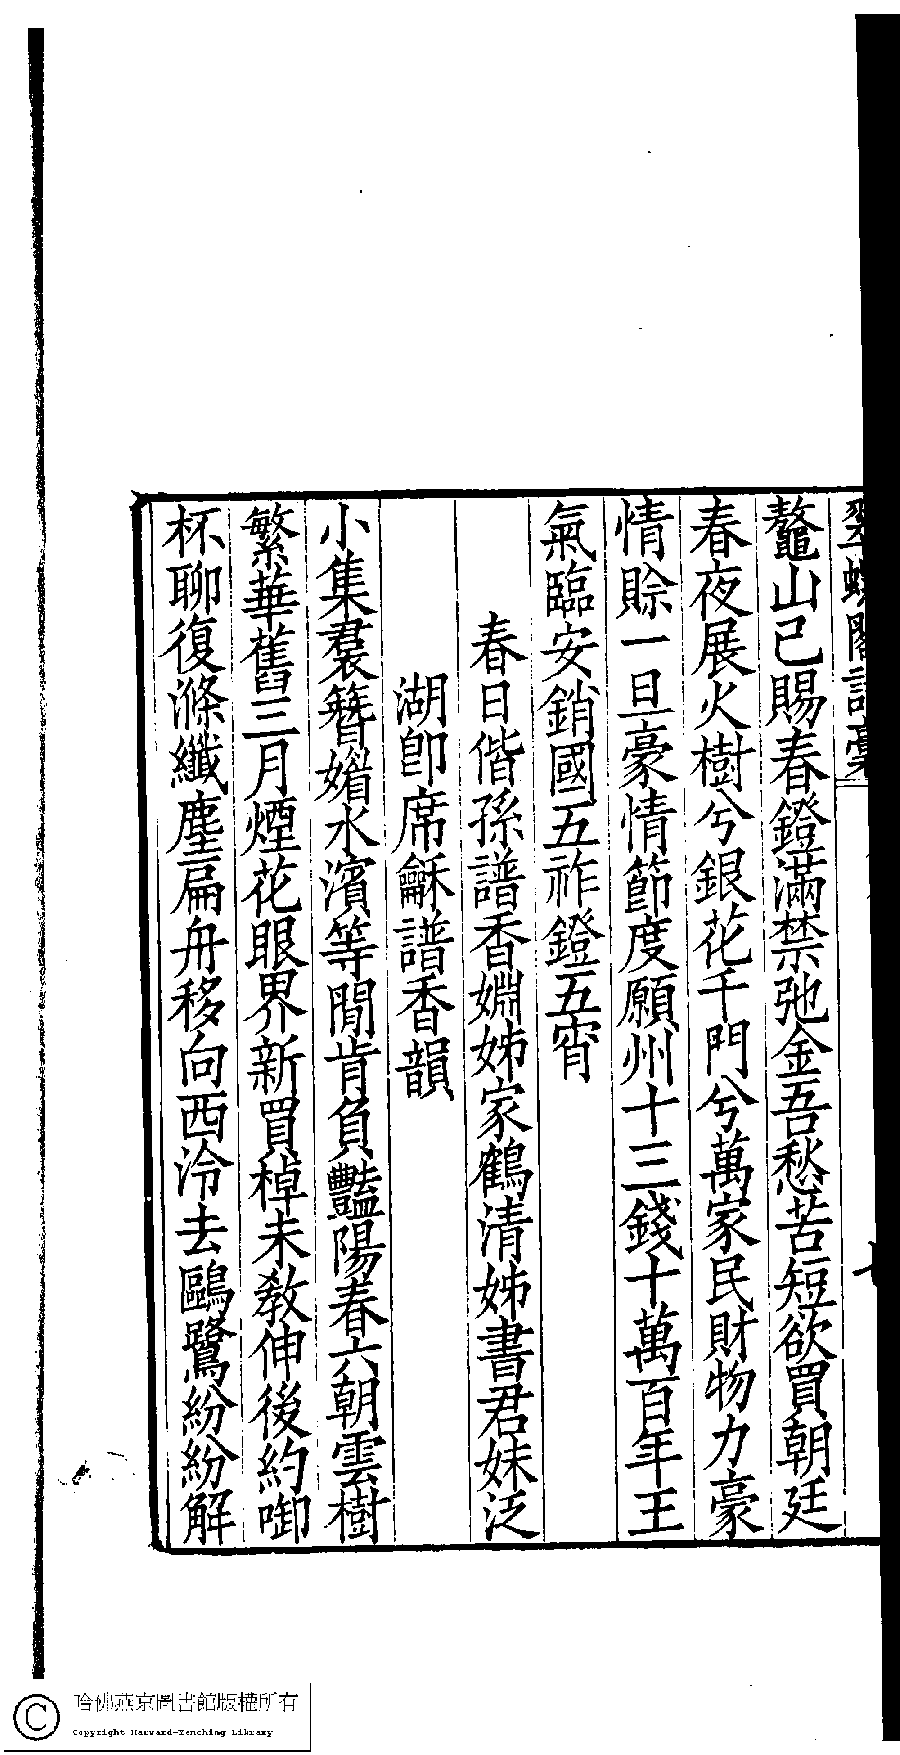 翠螺閣詩藁
鼇山已賜春鐙滿禁弛金吾愁苦短欲買朝廷
春夜展火樹兮銀花千門兮萬家民財物力豪
情賒一旦豪情節度願州十三錢十萬百年王
氣臨安銷國五祚鐙五宵
春日偕孫譜香嫺姊家鶴清姊書君妹泛
湖卽席龢譜香韻
小集羣簪媚水濱等閒肯負豔陽春六朝雲樹
繁華舊三月煙花眼界新買棹未教伸後約啣
杯聊復滌纖塵扁舟移向西泠去鷗鷺紛紛解
哈佛燕京圖書館版權所有
Copyright Harvard-Yenching Library